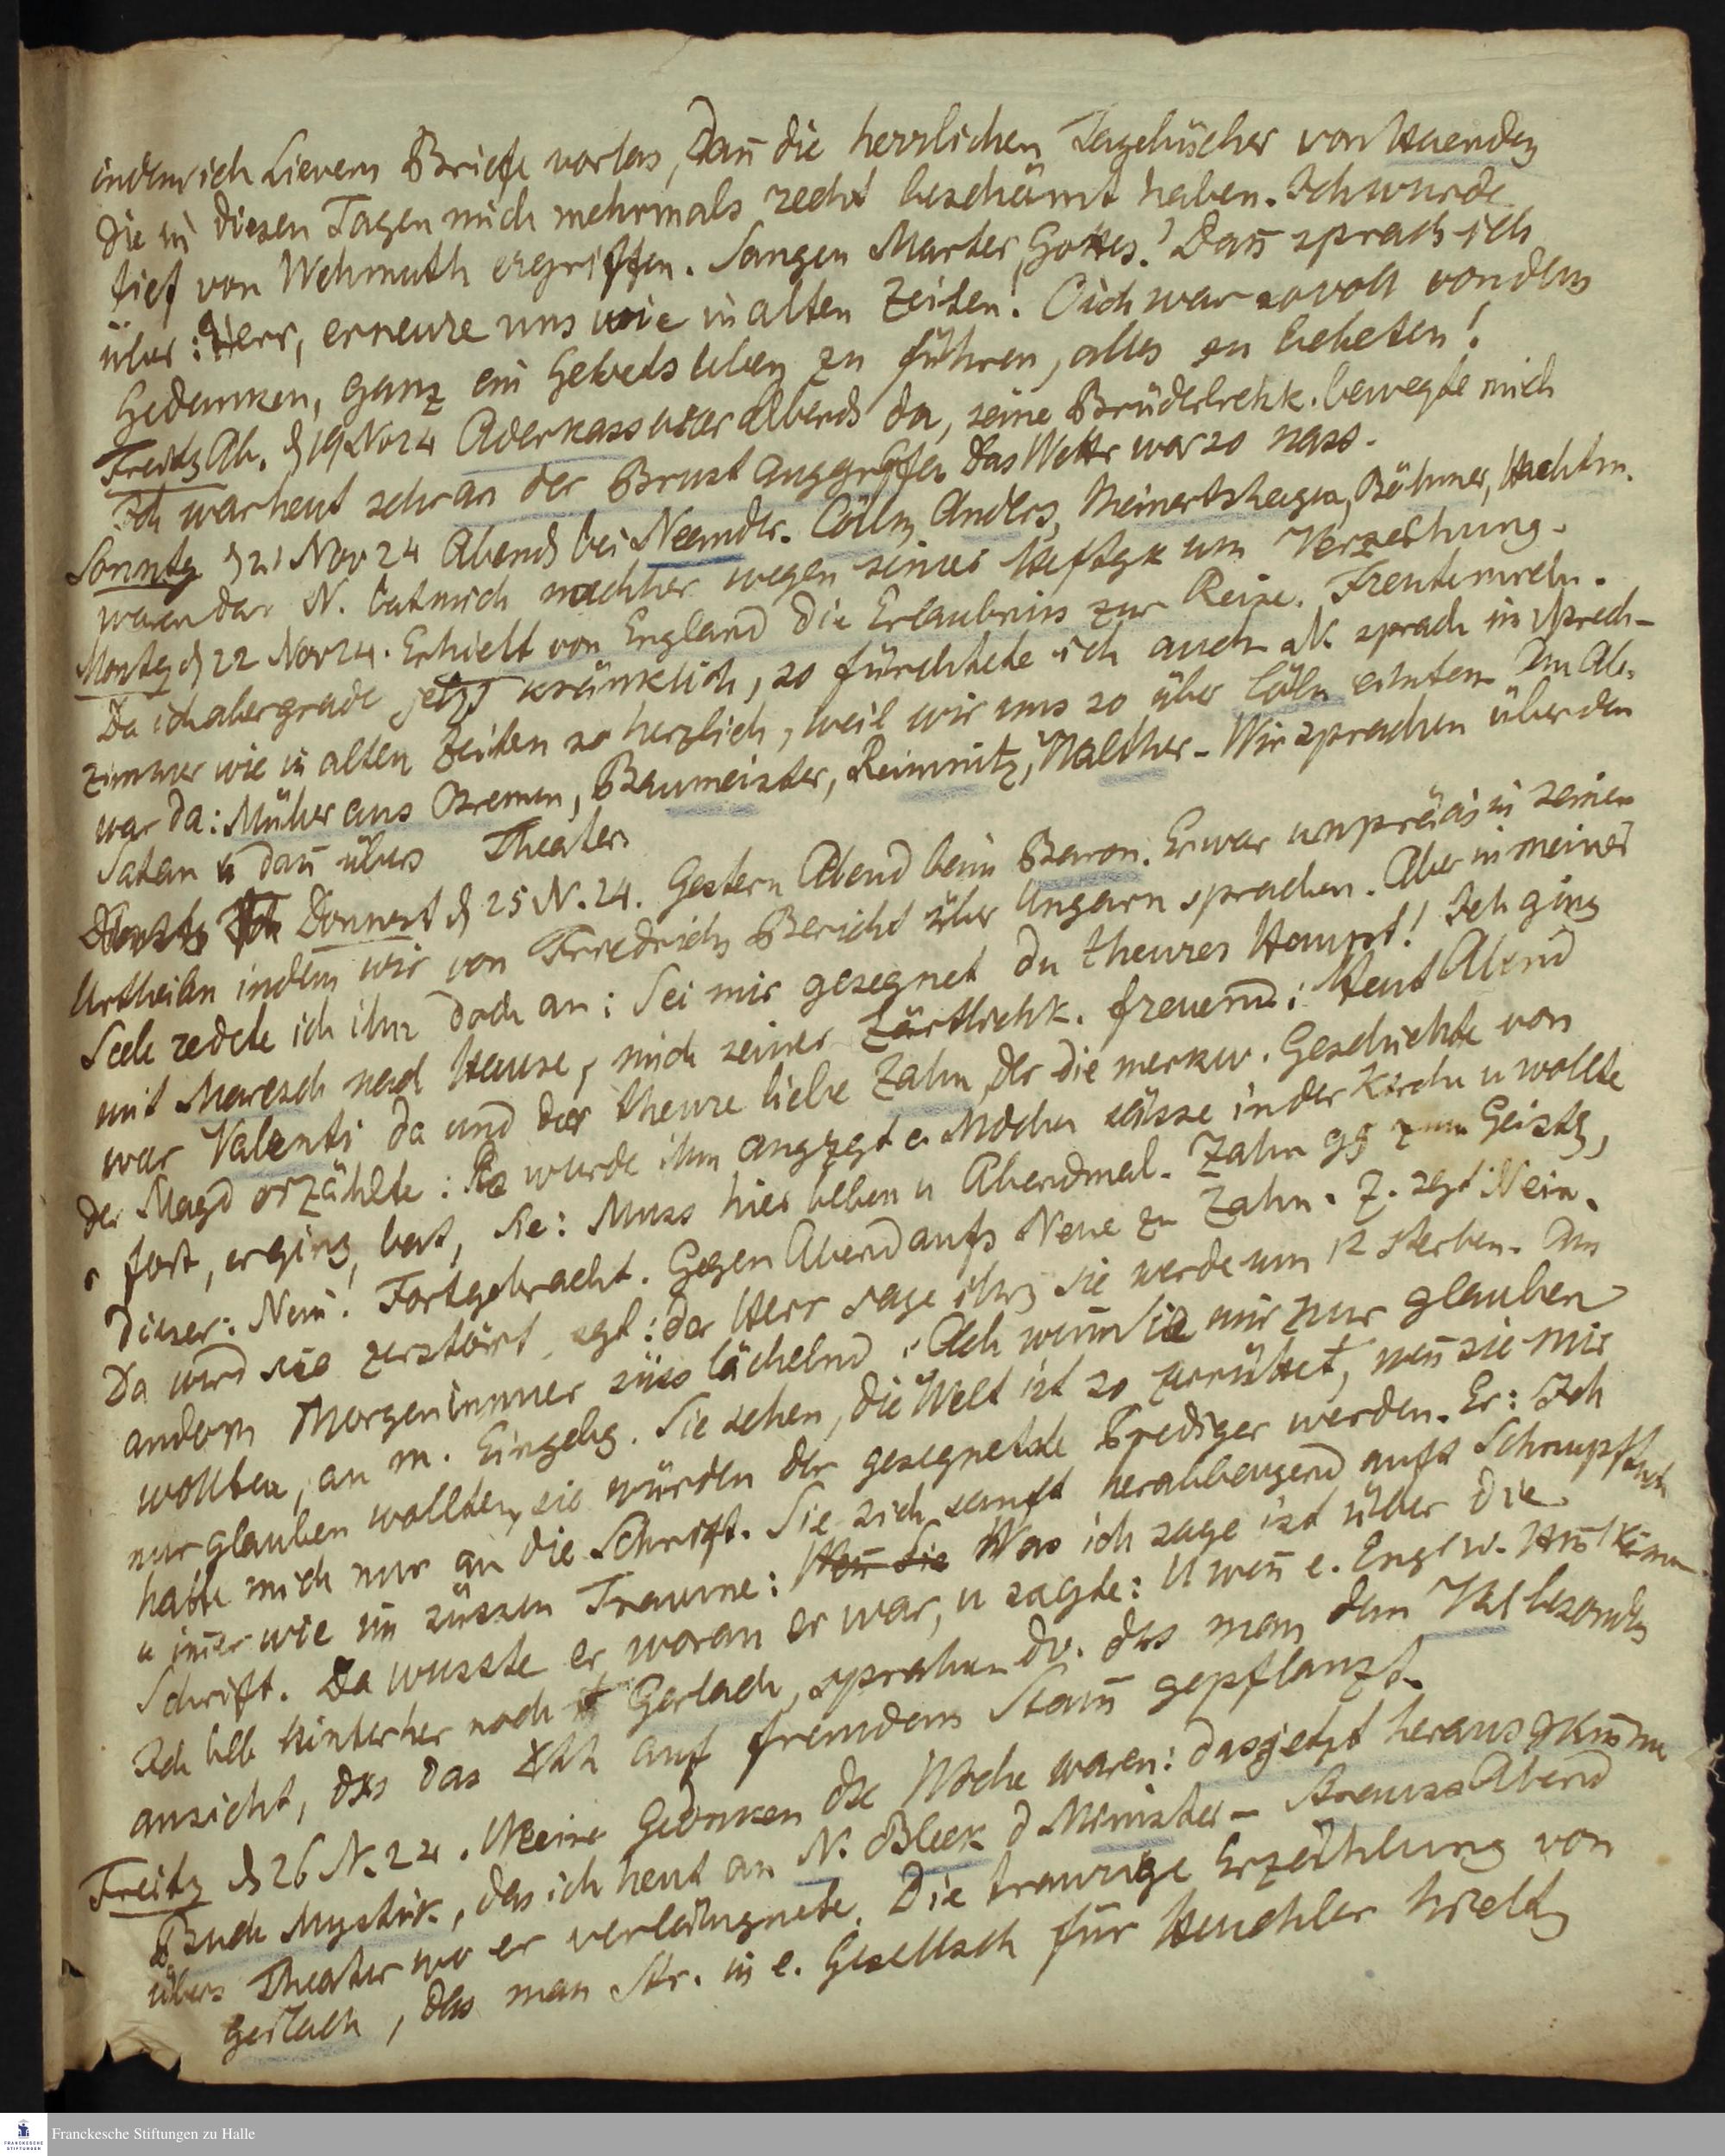 indem ich Lievens Briefe vorlas, Dañ die herrlichen Tagebücher von
die in diesen Tagen mich mehrmals recht beschämt haben. Ich wurde
tief von Wehmuth ergriffen. Sangen Marter Gottes! Dañ sprach ich
über: Herr, erneure uns wie in alten Zeiten! O ich war so voll von dem
Gedanken, ganz ein Gebetsleben zu führen, alles zu bebeten!
Freitg Ab. d 19 Nov 24 Aderkass war abends da, seine Brüderlichk. bewegte mich
Ich war heut sehr an der Brust anggrifen Das Wettr war so nass.
Sonntg d 21 Nov 24 Abends bei Neandr. Cölln, Anders, Meinertshagen, Böhmer,
waren da. N. bat mich nachher wegen seiner Heftgk um Verzeihung.
Montg d 22 Nov 24. Erhielt von England die Erlaubnis zur Reise. Freute mich.
Da ich aber grade jetzt kränklich, so fürchtete ich auch N. sprach im Sprech-
zimmer wie in alten Zeiten so herzlich, weil wir uns so über Cölln Am Ab.
war da: Müller aus Bremen, Baumeister, Reimnitz, Walther - Wir sprachen über den
Satan u dañ übers Theater.
Donnerst d 25 N. 24. Gestern Abend beim Baron. Er war unpräcis in seinen
Urtheilen indem wir von Friedrichs Bericht über Ungarn sprachen. Aber in meiner
Seele redete ich ihn doch an: Sei mir gesegnet du theures Haupt! Ich ging
mit Maresch nach Hause, mich seiner Zärtlichk. freuend: Heut Abend
war Valenti da und der theure liebe Zahn, der die merkw. Geschichte von
der Magd erzählte: Es wurde ihm angezgt e. Mdchn sässe in der Kirche u wollte
n fort, er ging, bat, sie: Muss hier bleben u Abendmal. Zahn gg zum Geistg,
dieser: Nein! Fortgebracht. Gegen Abend aufs Neue zu Zahn. Z. sagt Nein.
Da wird sie zerstört, sgt: der Herr sage ihr sie werde um 12 sterben. Am
andern Morgen immer süss lächelnd: Ach wenn Sie mir nur glauben
wollten, an m. Eingebg. Sie sehen, die Welt ist so zerrüttet, weñ sie mir
nur glauben wollten, sie würden der gesegnetste Prediger werden. Er: Ich
halte mich nur an die Schrift. Sie sich sanft herabbeugend aufs Schnupftuch
u im̃er wie im süssen Traume: Weñ Sie Was ich sage ist über die
Schrift. Da wusste er, woran er war, u sagte: U weñ e. Engl v. Him̃l käme
Ich blb hinterher noch Gerlach, sprachen dv. dss man dem Val besonders
ansicht, dss das auf fremdem Stam̃ gepflanzt.
Freitg d 26 N. 24. Meine Gedanken dse Woche waren: das jetzt herausgkom̃ne
Buch Mystik, das ich heut an N. Bleek d Minister - Strauss Abend
übers Theater wo er verläugnete. Die traurige Erzählung von
Gerlach, dss man Str. in e. Gesellsch für Heuchler hielt,
Franckesche Stiftungen zu Halle